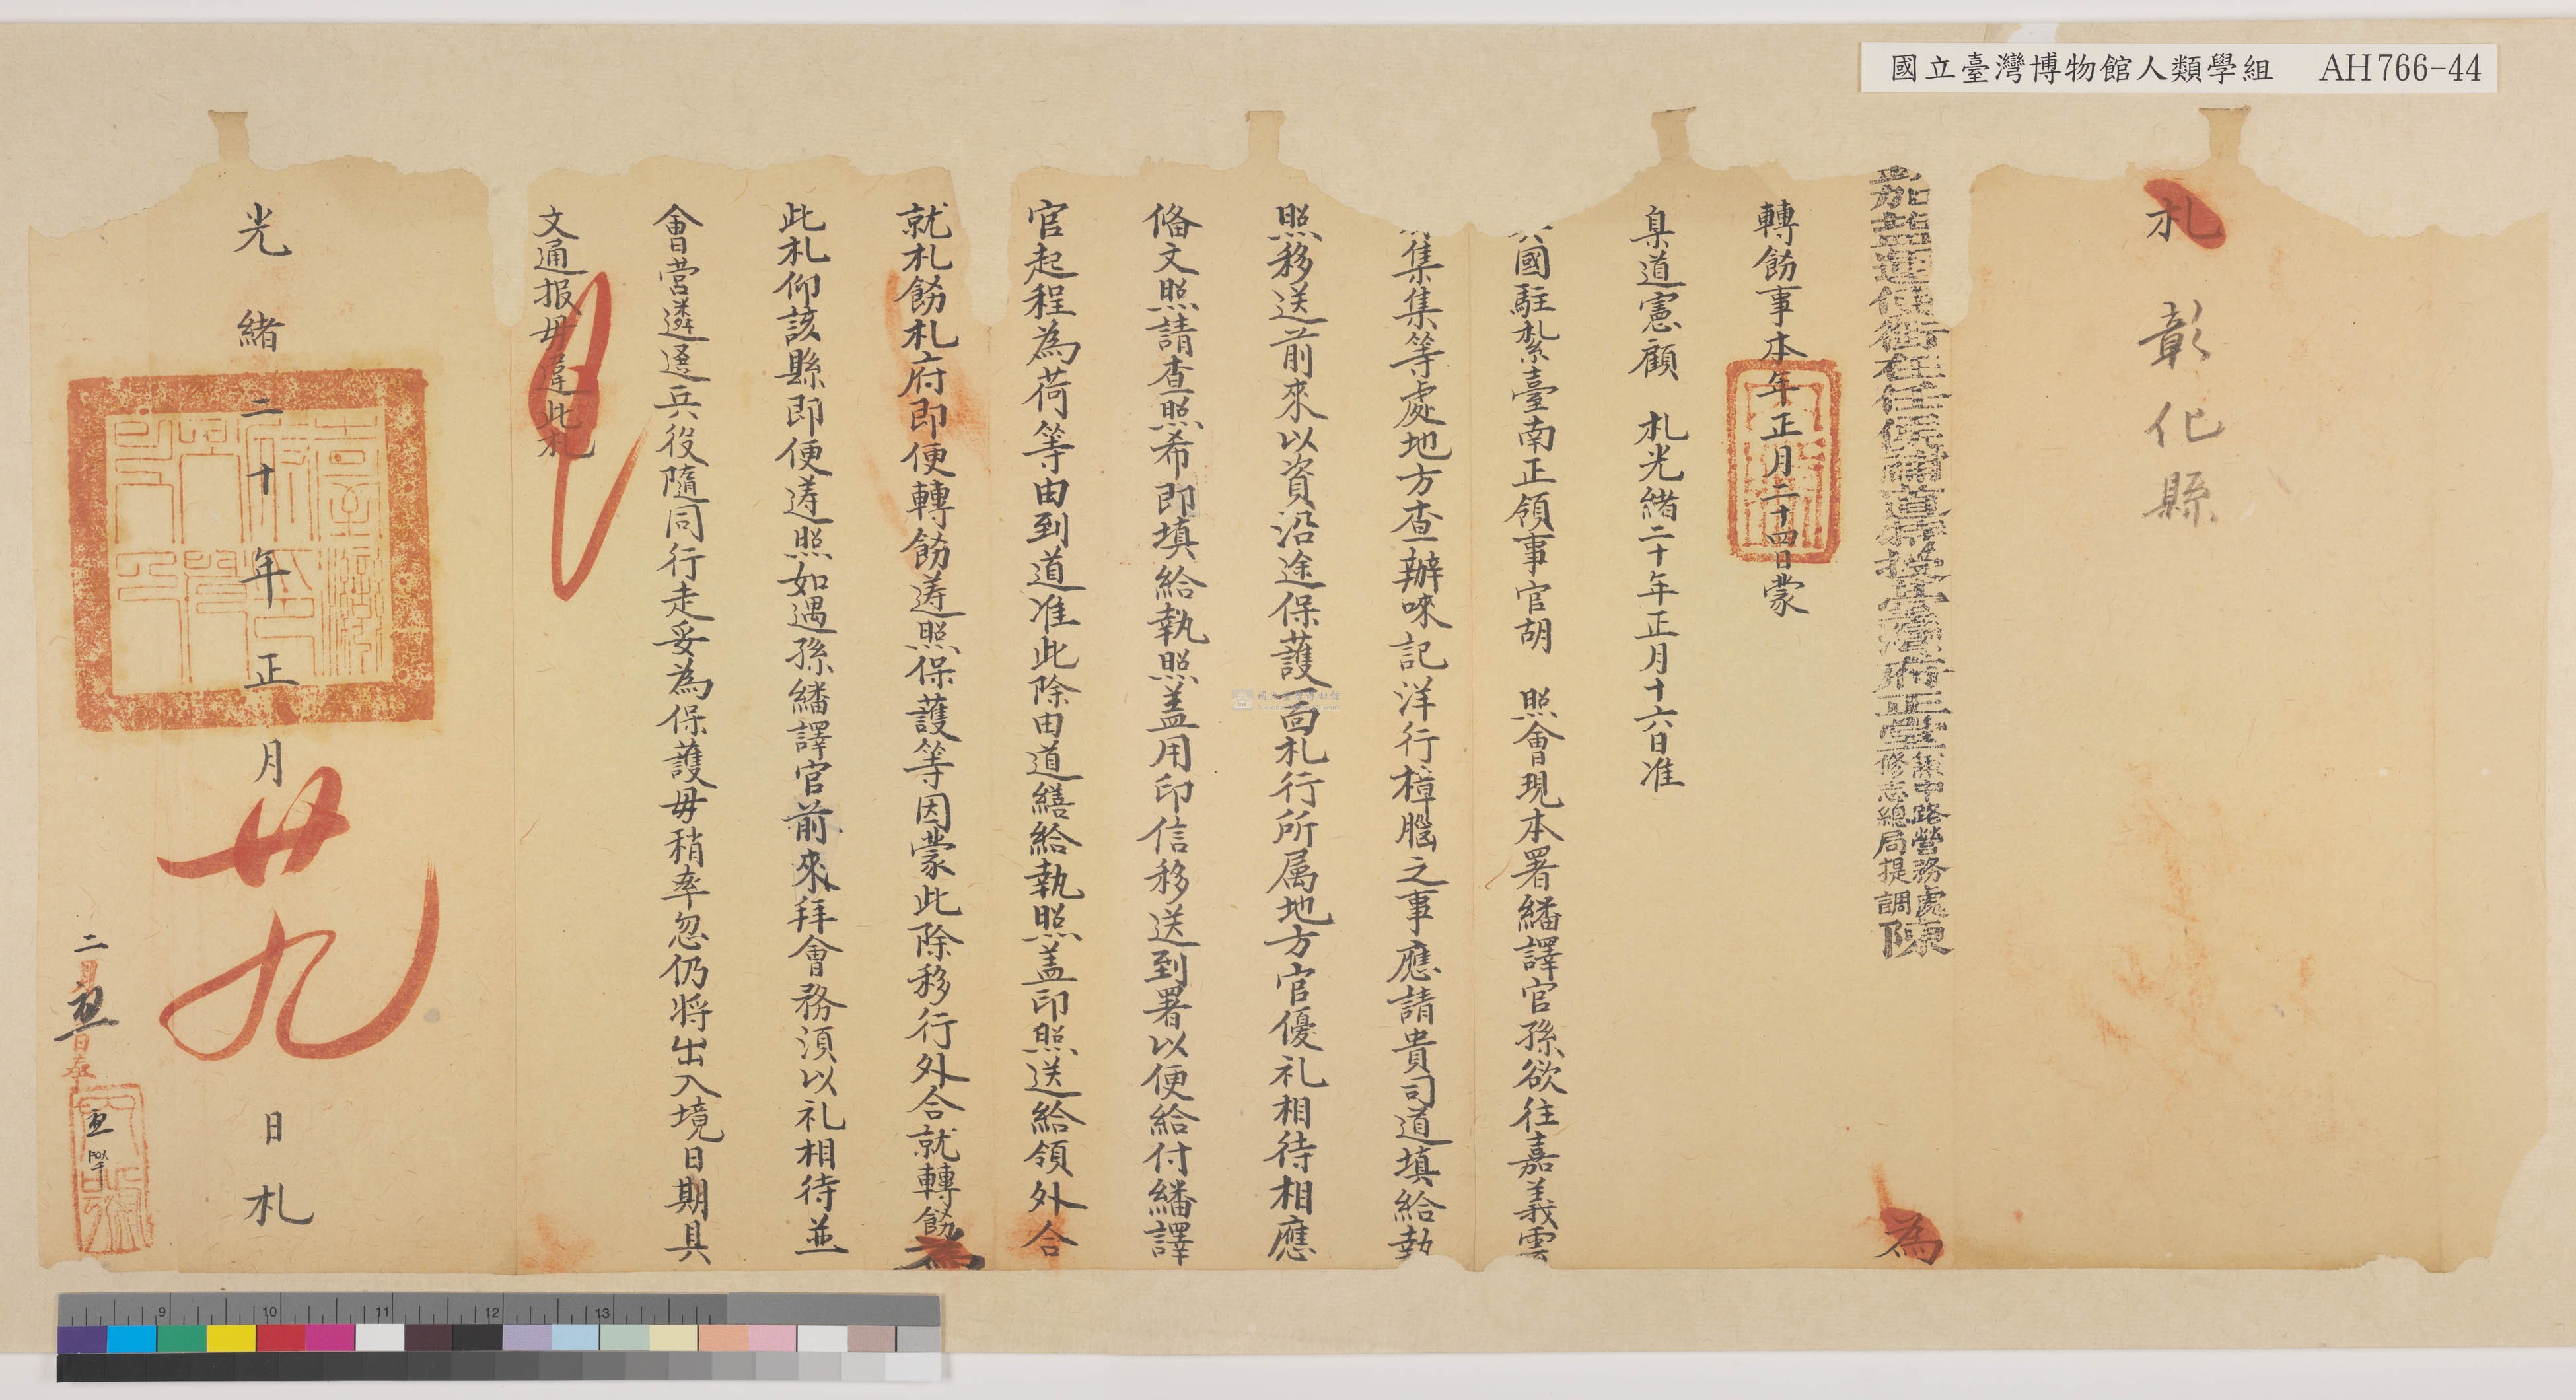 國立臺灣博物館人類學組 AH766-44
札 彰化縣
加鹽運使銜在任候補道特授臺灣府正堂兼中路營務處修志總局提調陳 為
轉飭事本年正月二十四日蒙
臬道憲顧 札光緒二十年正月十六日准
國駐紮臺南正領事官胡 照會現本署繙譯官孫欲往嘉義雲
集集等處地方查辦唻記洋行樟腦之事應請貴司道填給執
照移送前來以資沿途保護一面札行所属地方官優礼相待相應
俻文照請查照希即填給執照盖用印信移送到署以便給付繙譯
官起程為荷等由到道准此除由道繕給執照盖印照送給領外合
就札飭札府即便轉飭遵照保護等因蒙此除移行外合就轉飭為
此札仰該縣即便遵照如遇孫繙譯官前來拜會務須以礼相待並
會营遴選兵役隨同行走妥為保護毋稍率忽仍將出入境日期具
文通报毋違此札
光緒二十年正月廿九日札
二月 日